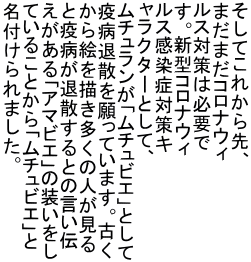 そしてこれから先、
まだまだコロナウィ
ルス対策は必要で
す。新型コロナウィ
ルス感染症対策キ
ャラクターとして、
ムチュランが「ムチュビエ」として
疫病退散を願っています。古く
から絵を描き多くの人が見る
と疫病が退散するとの言い伝
えがある「アマビエ」の装いをし
ていることから「ムチュビエ」と
名付けられました。